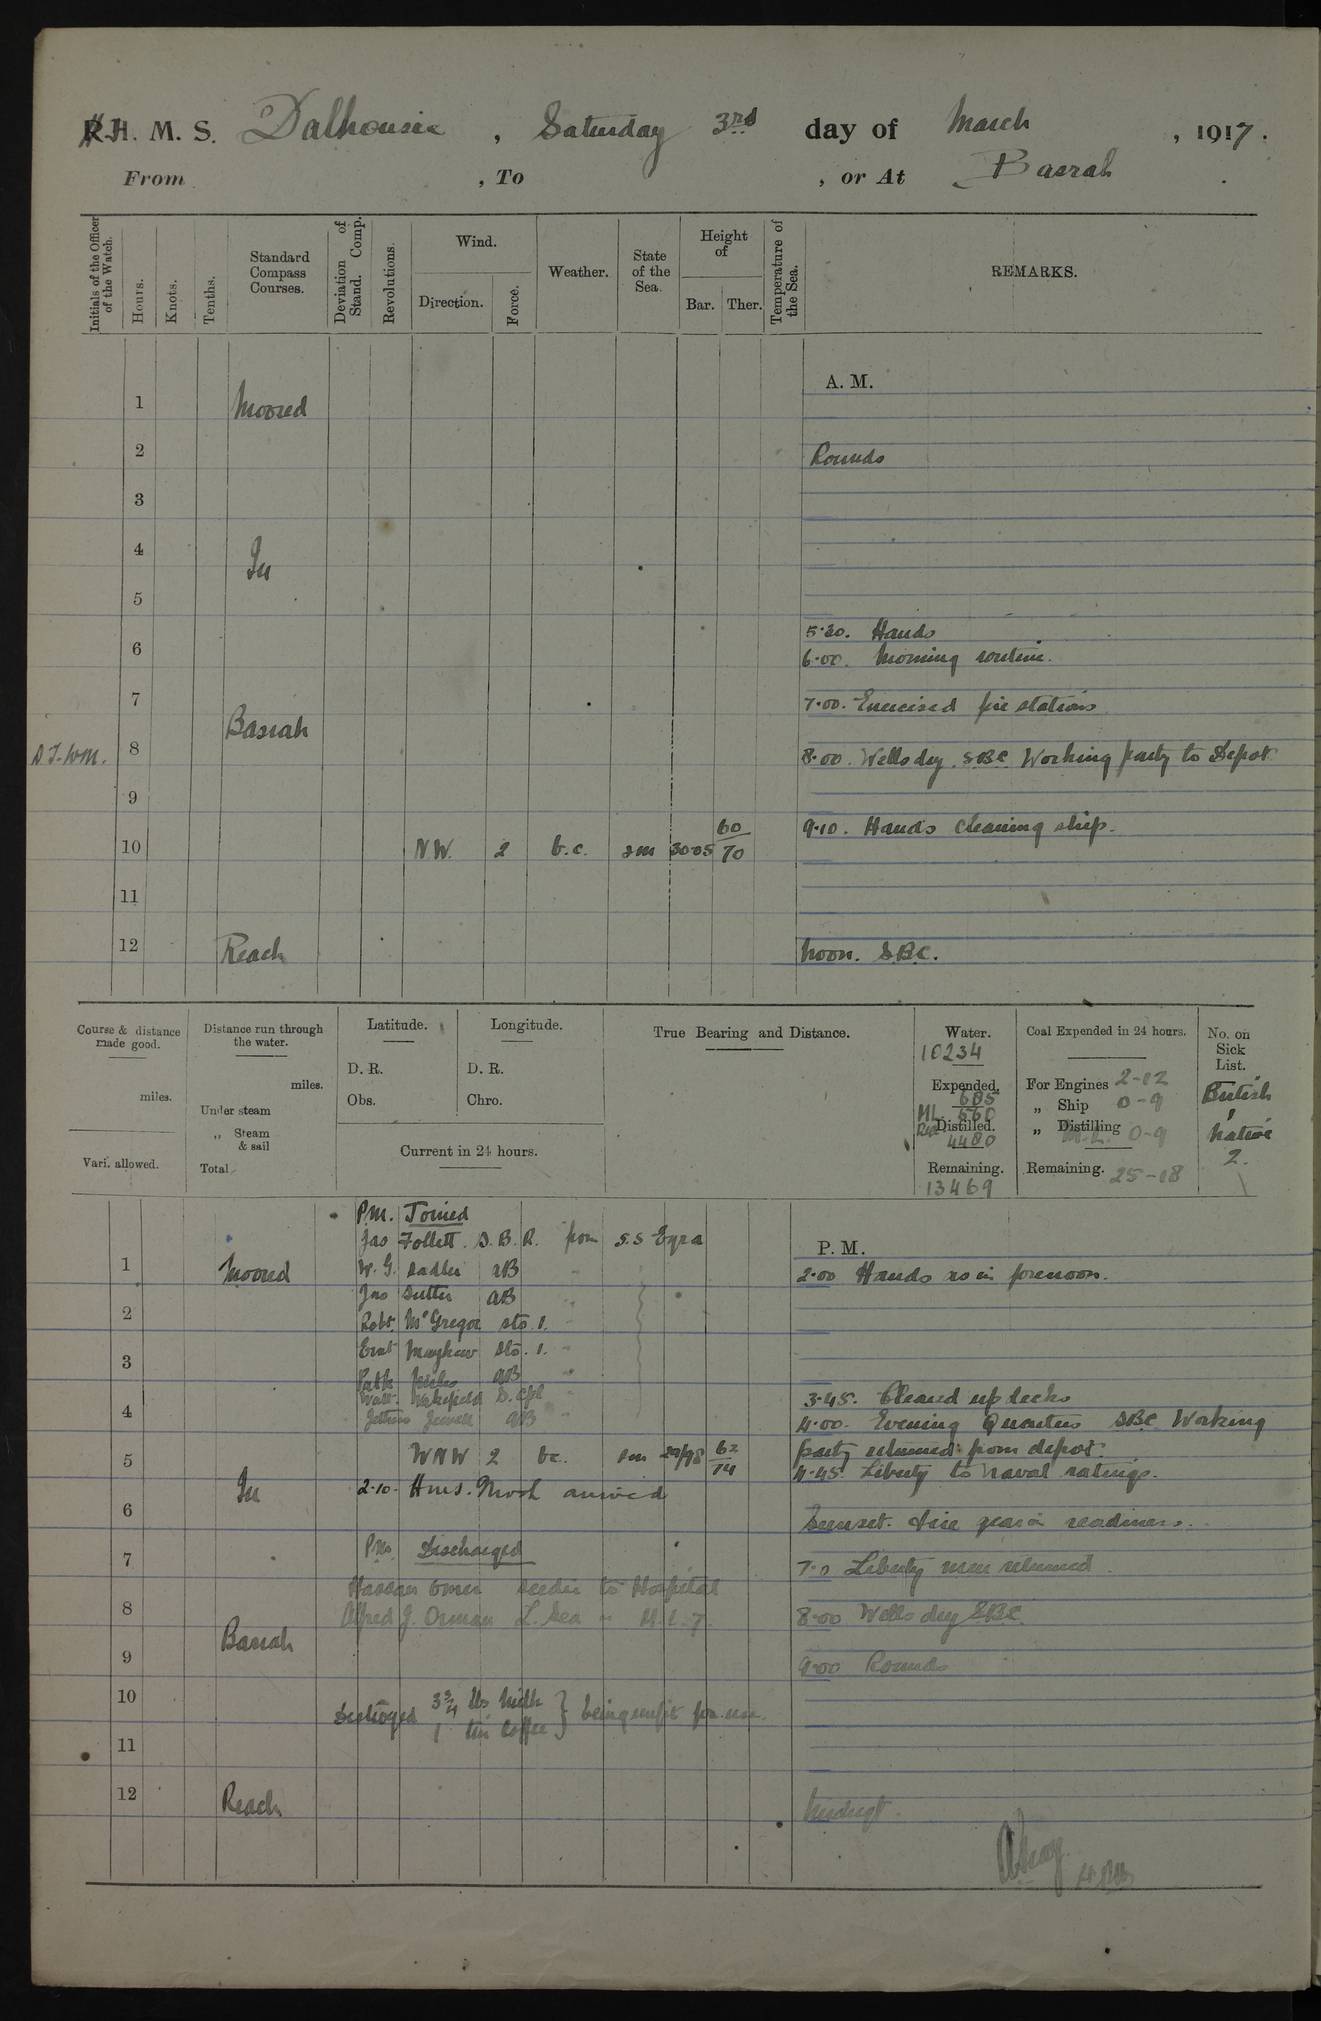 H. M. S. Dalhousie , Saturday 3rd day of March , 1917.
From , To , or At Basrah
Initials of the Officer of the Watch.
Hours.
Knots.
Tenths.
Standard Compass Courses.
Deviation of Stand. Comp.
Revolutions.
Wind.
Direction.
Force.
Weather.
State of the Sea.
Height of
Bar. Ther.
Temperature of the Sea.
REMARKS.
A. M.
1 Moored
2 Rounds
3
4 In
5
5·30. Hands
6 6·00. Morning routine.
7 7·00. Exercised fire stations
Basrah
8 8·00. Wells dry. SBC Working party to Depot
9
9·10. Hands cleaning ship.
10 N W. 2 b.c. sm 30·05 60/70
11
12 Reach Noon. SBC.
Course & distance made good.
miles.
Vari. allowed.
Distance run through the water.
miles.
Under steam
„ Steam & sail
Total
Latitude.
D. R.
Obs.
Longitude.
D. R.
Chro.
Current in 24 hours.
True Bearing and Distance.
Water.
10234
Expended.
685
ML 560
Distilled.
4480
Remaining.
13469
Coal Expended in 24 hours.
For Engines 2-12
„ Ship 0-9
„ Distilling 0-9
Remaining. 25-18
No. on Sick List.
British
1
Native
2.
P.M. Joined
Jas Follett. S.B.R. from S.S Egra
P. M.
1 Moored W. G. Sadler AB „
2·00 Hands as in forenoon.
Jas Sutter AB
2 Robt. McGregor Sto. 1. „
Ernt Mayhew Sto. 1. „
3 Patk Miles AB
Walt. Wakefield S. Cpl „
3·45. Cleared up decks
4 Jewell AB „
4·00. Evening Quarters SBC Working
party returned from depot.
5 W N W 2 bc. sm 29/98 62/74
4·45. Liberty to Naval ratings.
In 2·10. H.M.S. Moth arrived
6 Sunset. Fire gear in readiness.
P.M. Discharged
7 7·0 Liberty men returned
Hassan Omer Seedie to Hospital
8 Alfred J. Orman L. Sea „ M.L. 7
8·00 Wells dry SBC.
Basrah
9 9·00 Rounds
10 Destroyed 3¾ lbs Milk } being unfit for use.
1 tin Coffee
11
12 Reach Midngt.